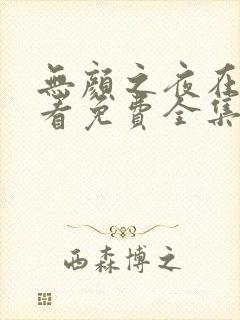 無顏之夜在
看免費全集
西森博之